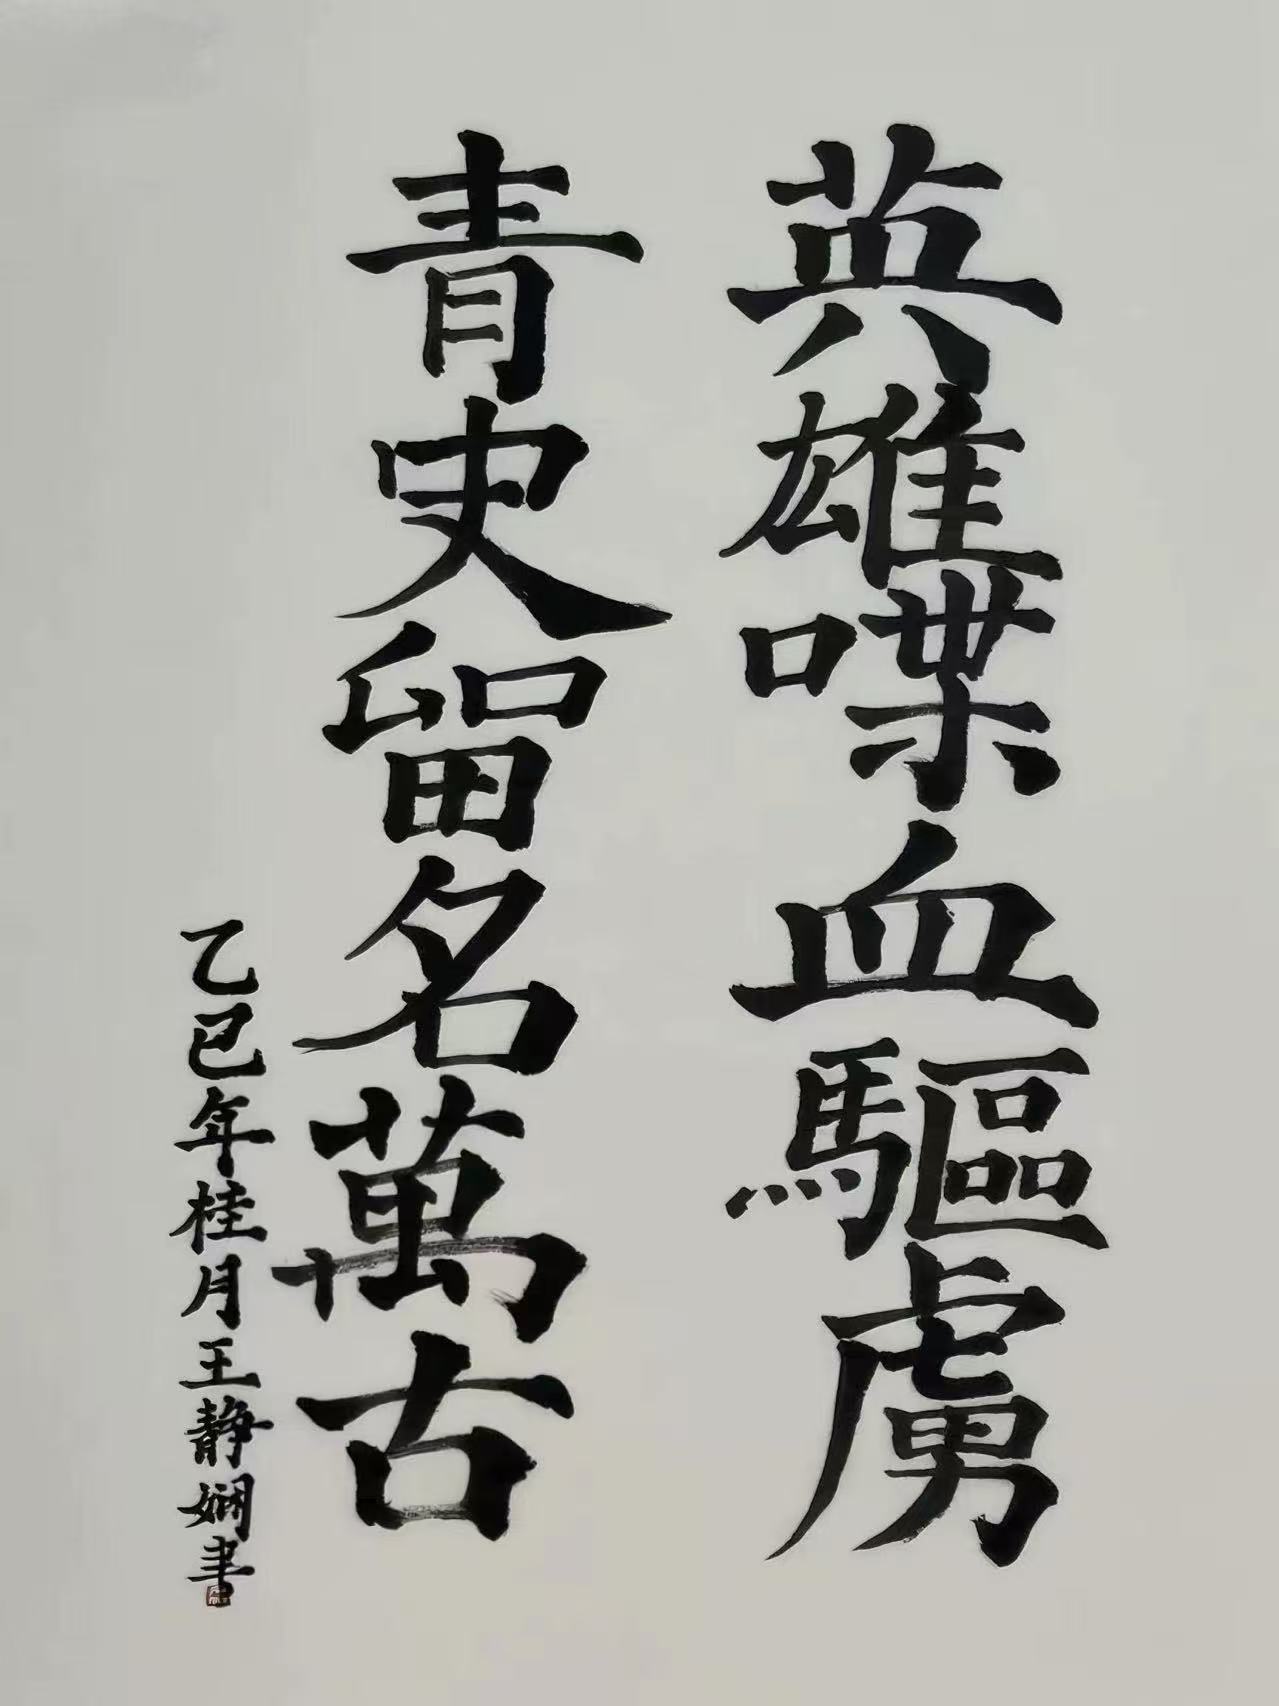 英雄喋血驅虜
青史留名萬古
乙巳年桂月王静娴書